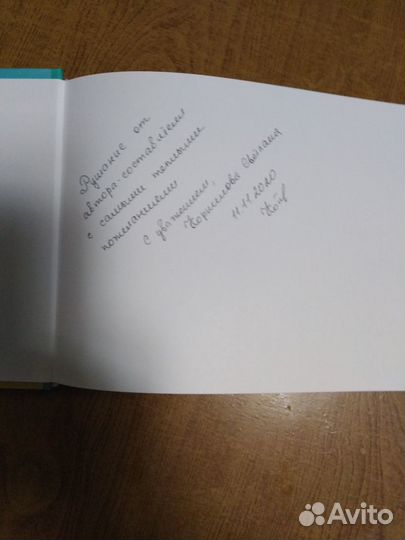 Рушание от
автора-составителя
с самыми теплыми
пожеланиями
С уважением,
Корнилова Светлана
11.11.2020
Avito